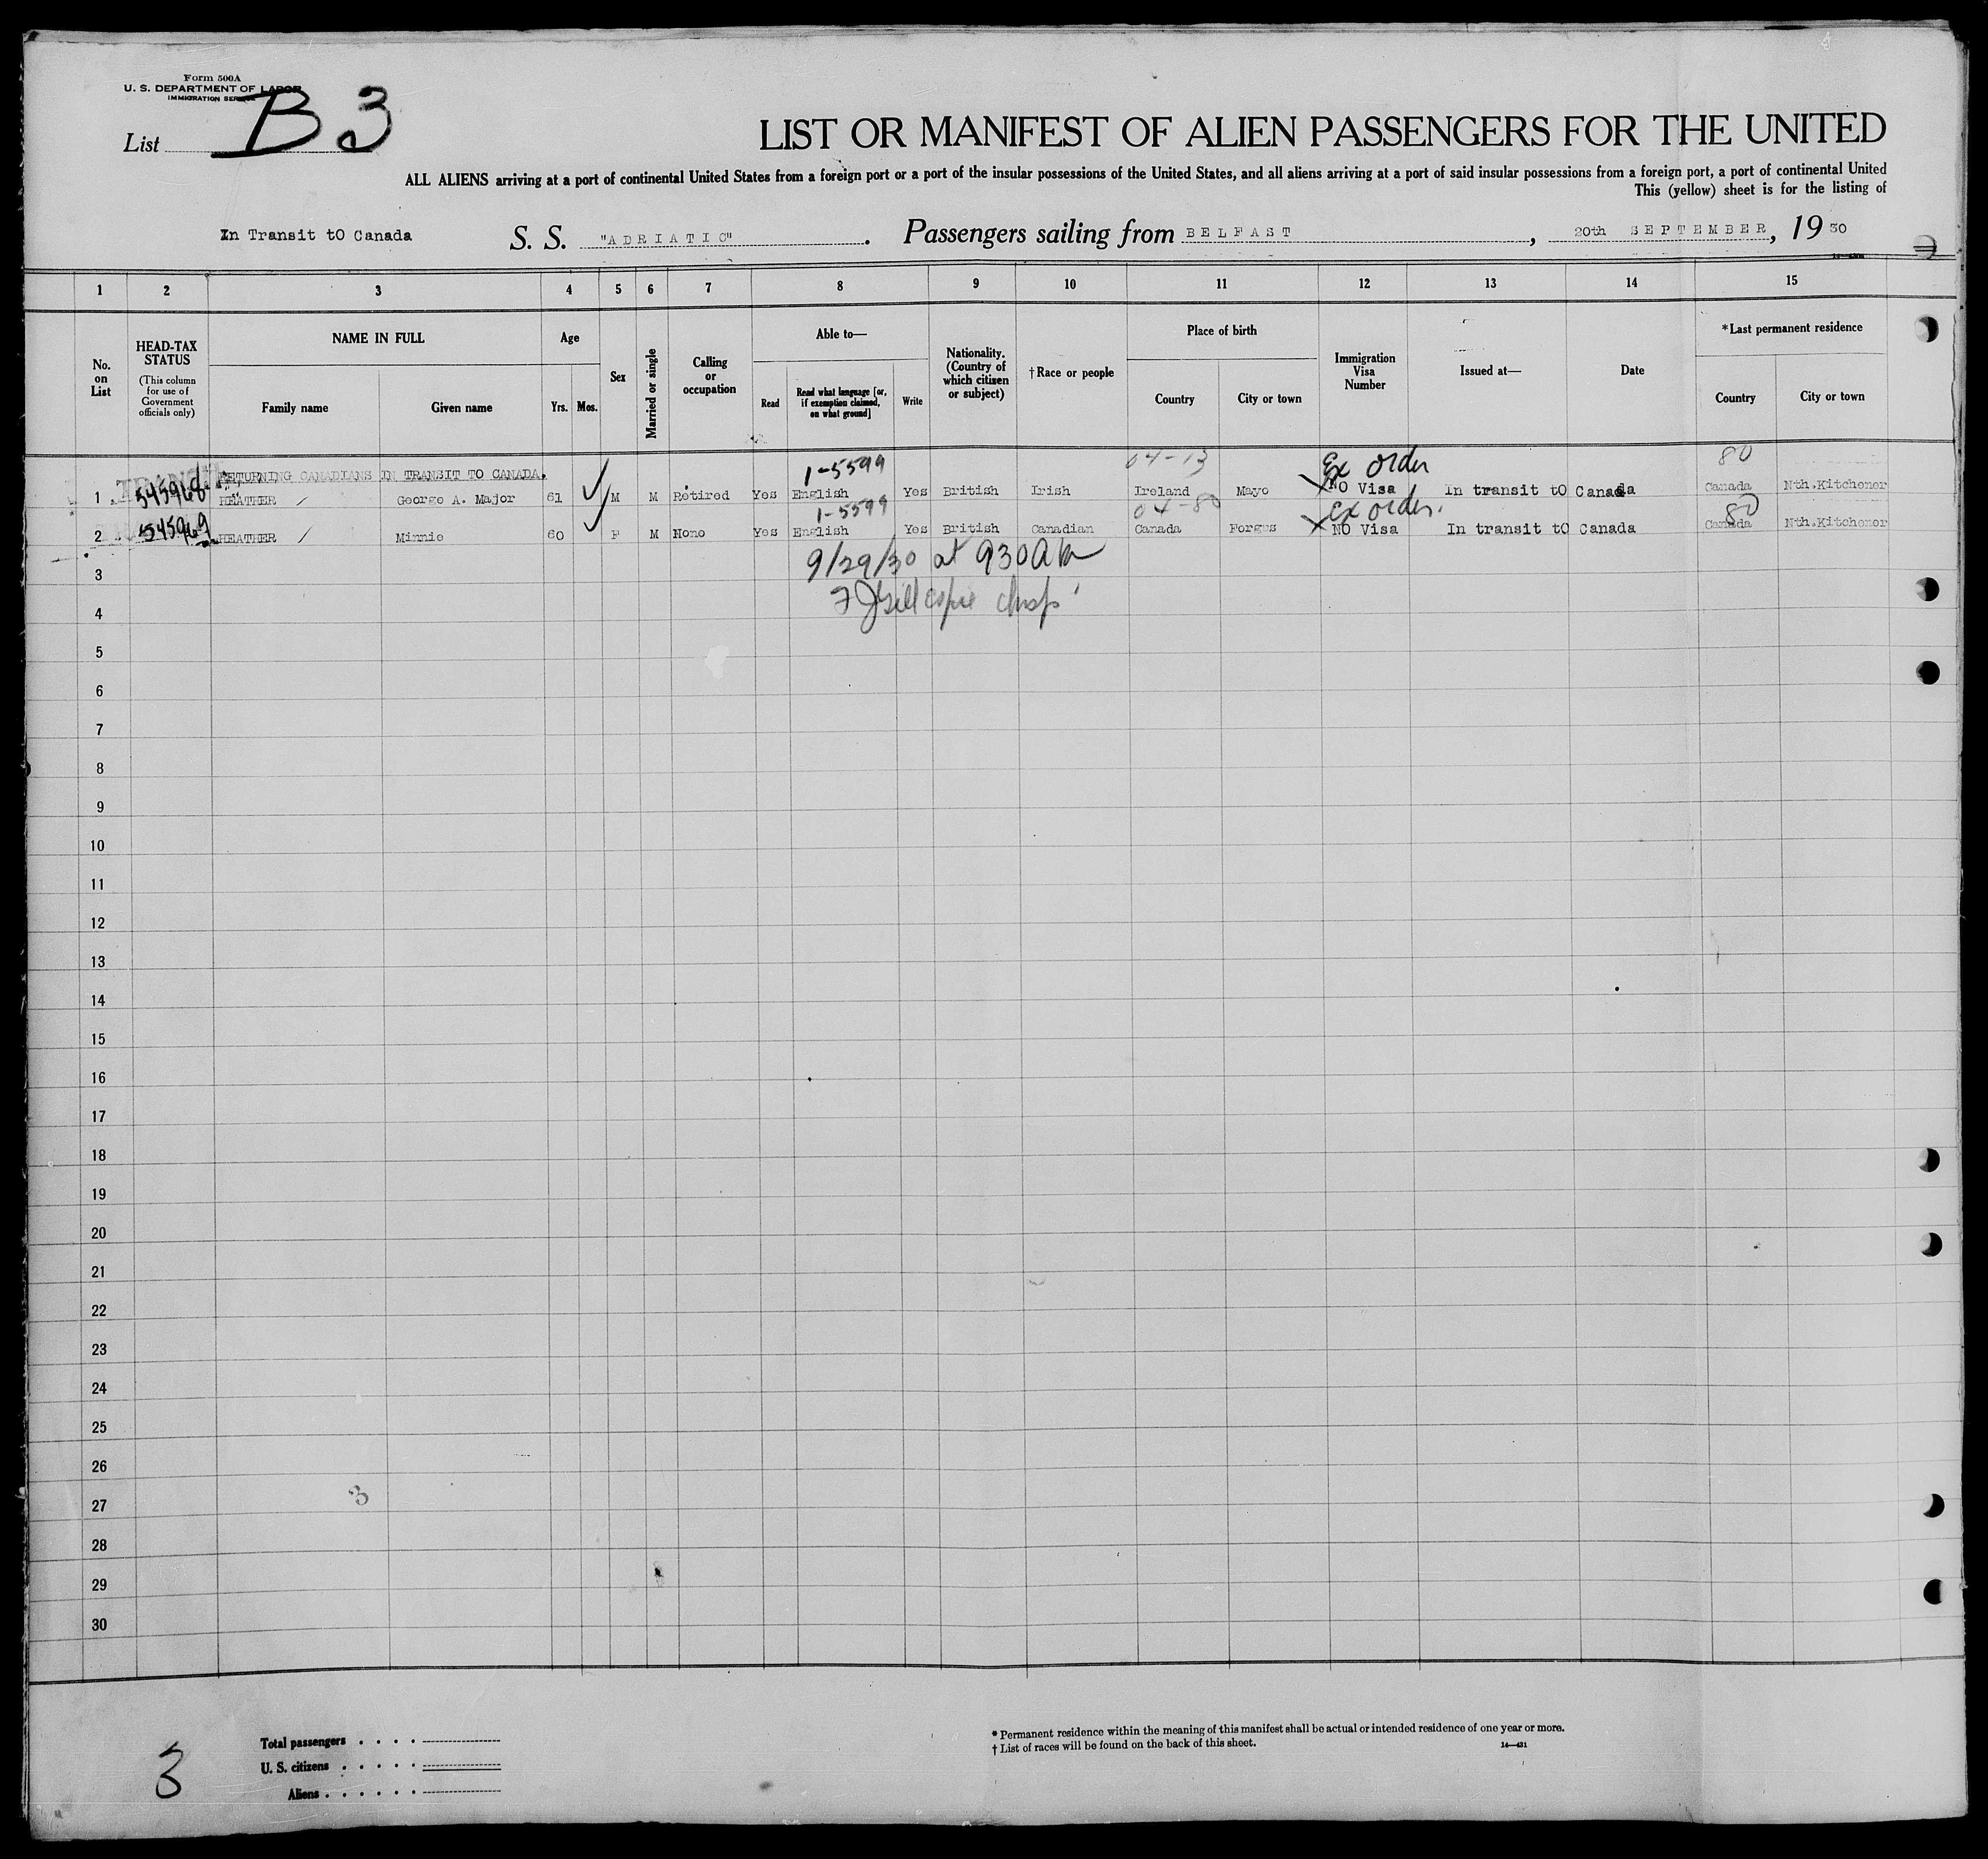 Form 500A
U. S. DEPARTMENT OF LABOR
IMMIGRATION SERVICE
List B 3
LIST OR MANIFEST OF ALIEN PASSENGERS FOR THE UNITED
ALL ALIENS arriving at a port of continental United States from a foreign port or a port of the insular possessions of the United States, and all aliens arriving at a port of said insular possessions from a foreign port, a port of continental United
This (yellow) sheet is for the listing of
In Transit tO Canada S. S. "ADRIATIC". Passengers sailing from BELFAST, 20th SEPTEMBER, 19 30
1 2 3 4 5 6 7 8 9 10 11 12 13 14 15
No. on List
HEAD-TAX STATUS
(This column for use of Government officials only)
NAME IN FULL
Family name Given name
Age
Yrs. Mos.
Sex
Married or single
Calling or occupation
Able to—
Read Read what language [or, if exemption claimed, on what ground] Write
Nationality. (Country of which citizen or subject)
†Race or people
Place of birth
Country City or town
Immigration Visa Number
Issued at—
Date
*Last permanent residence
Country City or town
RETURNING CANADIANS IN TRANSIT TO CANADA. 1-5599 04-13 Ex order 80
1 545968 HEATHER / George A. Major 61 M M Retired Yes English Yes British Irish Ireland Mayo NO Visa In transit tO Canada Canada Nth.Kitchener
1-5599 04-80 Ex order. 80
2 545969 HEATHER / Minnie 60 F M None Yes English Yes British Canadian Canada Fergus NO Visa In transit tO Canada Canada Nth.Kitchener
9/29/30 at 930AM
3
F J Gillespie
4
5
6
7
8
9
10
11
12
13
14
15
16
17
18
19
20
21
22
23
24
25
26
27 3
28
29
30
Total passengers . . . .
U. S. citizens . . . . .
Aliens . . . . . .
3
* Permanent residence within the meaning of this manifest shall be actual or intended residence of one year or more.
† List of races will be found on the back of this sheet. 14—431